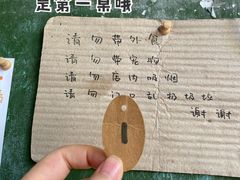 是第一桌哦
请勿带外食
请勿带宠物
请勿店内吸烟
请勿门口乱扔垃圾
谢谢
1